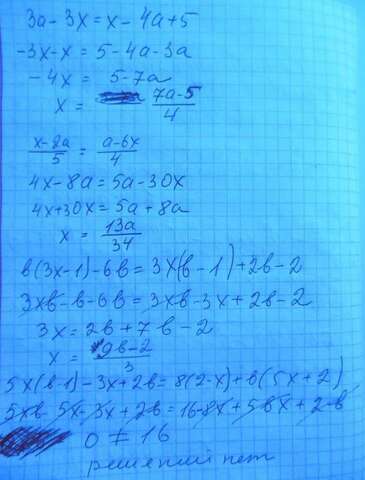 3a - 3x = x - 4a + 5
-3x - x = 5 - 4a - 3a
-4x = 5 - 7a
x = (7a - 5)/4
(x - 8a)/5 = (a - 6x)/4
4x - 8a = 5a - 30x
4x + 30x = 5a + 8a
x = 13a/34
в(3x - 1) - 6в = 3x(в - 1) + 2в - 2
3xв - в - 6в = 3xв - 3x + 2в - 2
3x = 2в + 7в - 2
x = (9в - 2)/3
5x(в - 1) - 3x + 2в = 8(2 - x) + в(5x + 2)
5xв - 5x - 3x + 2в = 16 - 8x + 5вx + 2в
0 ≠ 16
решений нет